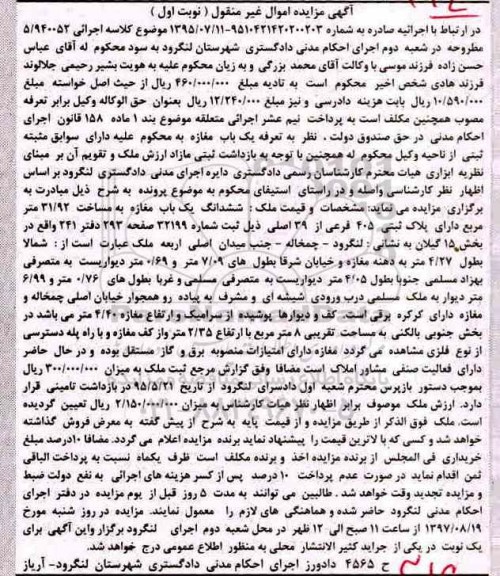 آگهی مزایده اموال غیر منقول ( نوبت اول )
در ارتباط با اجرائیه صادره به شماره ۹۵۱۰۴۲۱۴۲۰۲۰۰۲۰۳-۱۳۹۵/۰۷/۱۱ موضوع کلاسه اجرائی ۵/۹۴۰۰۵۲
مطروحه در شعبه دوم اجرای احکام مدنی دادگستری شهرستان لنگرود به سود محکوم له آقای عباس
حسن زاده فرزند موسی با وکالت آقای محمد بزرگی و به زیان محکوم علیه به هویت بشیر رحیمی جلالوند
فرزند هادی شخص اخیر محکوم است به تادیه مبلغ ۴۶۰/۰۰۰/۰۰۰ ریال از حیث اصل خواسته مبلغ
۱۰/۵۹۰/۰۰۰ ریال بابت هزینه دادرسی و نیز مبلغ ۱۲/۲۴۰/۰۰۰ ریال بعنوان حق الوکاله وکیل برابر تعرفه
مصوب همچنین مکلف است به پرداخت نیم عشر اجرائی متعلقه موضوع بند ۱ ماده ۱۵۸ قانون اجرای
احکام مدنی در حق صندوق دولت . نظر به تعرفه یک باب مغازه به محکوم علیه دارای سوابق مثبته
ثبتی از ناحیه وکیل محکوم له و همچنین با توجه به بازداشت ثبتی مازاد ارزش ملک و تقویم آن بر مبنای
نظریه ابزاری هیات محترم کارشناسان رسمی دادگستری دایره اجرای مدنی دادگستری لنگرود بر اساس
اظهار نظر کارشناسی واصله و در راستای استیفای محکوم به موضوع پرونده به شرح ذیل مبادرت به
برگزاری مزایده می نماید: مشخصات و قیمت ملک : ششدانگ یک باب مغازه به مساحت ۳۱/۹۲ متر
مربع دارای پلاک ثبتی ۴۰۵ فرعی از ۳۹ اصلی ذیل ثبت شماره ۳۲۱۹۹ صفحه ۲۹۳ دفتر ۲۴۱ واقع در
بخش ۱۵ گیلان به نشانی : لنگرود – چمخاله – جنب میدان اصلی اربعه ملک عبارت است از : شمالا
بطول ۴/۲۷ متر به دهنه مغازه و خیابان شرقا بطول های ۷/۰۹ متر و ۰/۶۹ متر دیواریست به متصرفی
بهزاد مسلمی جنوبا بطول ۴/۰۵ متر دیواریست به متصرفی مسلمی و غربا بطول های ۰/۷۶ متر و ۶/۹۹
متر دیوار به ملک مسلمی درب ورودی شیشه ای و مشرف به پیاده رو همجوار خیابان اصلی چمخاله و
مغازه دارای کرکره برقی است. کف و دیوارها پوشیده از سرامیک و ارتفاع مغازه ۴/۴۰ متر می باشد در
بخش جنوبی بالکنی به مساحت تقریبی ۸ متر مربع با ارتفاع ۲/۳۵ متر واز کف مغازه و با راه پله دسترسی
از نوع فلزی مشاهده می گردد مغازه دارای امتیازات منصوبه برق و گاز مستقل بوده و در حال حاضر
دارای فعالیت صنفی مشاور املاک است مضافا وفق گزارش مرجع ثبت ملک به میزان ۳۰۰/۰۰۰/۰۰۰ ریال
بموجب دستور بازپرس محترم شعبه اول دادسرای لنگرود از تاریخ ۹۵/۵/۲۱ در بازداشت تامینی قرار
دارد. ارزش ملک موصوف برابر اظهار نظر هیات کارشناسان به میزان ۲/۱۵۰/۰۰۰/۰۰۰ ریال تعیین گردیده
است. ملک فوق الذکر از طریق مزایده و از قیمت پایه به شرح از پیش گفته به معرض فروش گذاشته
خواهد شد و کسی که بالاترین قیمت را پیشنهاد نماید برنده مزایده اعلام می گردد. مضافا ۱۰درصد مبلغ
خریداری فی المجلس از برنده مزایده اخذ و برنده مکلف است ظرف یکماه نسبت به پرداخت الباقی
ثمن اقدام نماید در صورت عدم پرداخت ۱۰ درصد پس از کسر هزینه های اجرائی به نفع دولت ضبط
و مزایده تجدید وقت خواهد شد . طالبین می توانند به مدت ۵ روز قبل از یوم مزایده در دفتر اجرای
احکام مدنی لنگرود حاضر شده و هماهنگی های لازم را معمول نمایند. مزایده در روز شنبه مورخ
۱۳۹۷/۰۸/۱۹ از ساعت ۱۱ صبح الی ۱۲ ظهر در محل شعبه دوم اجرای لنگرود برگزار واین آگهی برای
یک نوبت در یکی از جراید کثیر الانتشار محلی به منظور اطلاع عمومی درج خواهد شد.
ح ۴۵۶۵ دادورز اجرای احکام مدنی دادگستری شهرستان لنگرود- آریاز